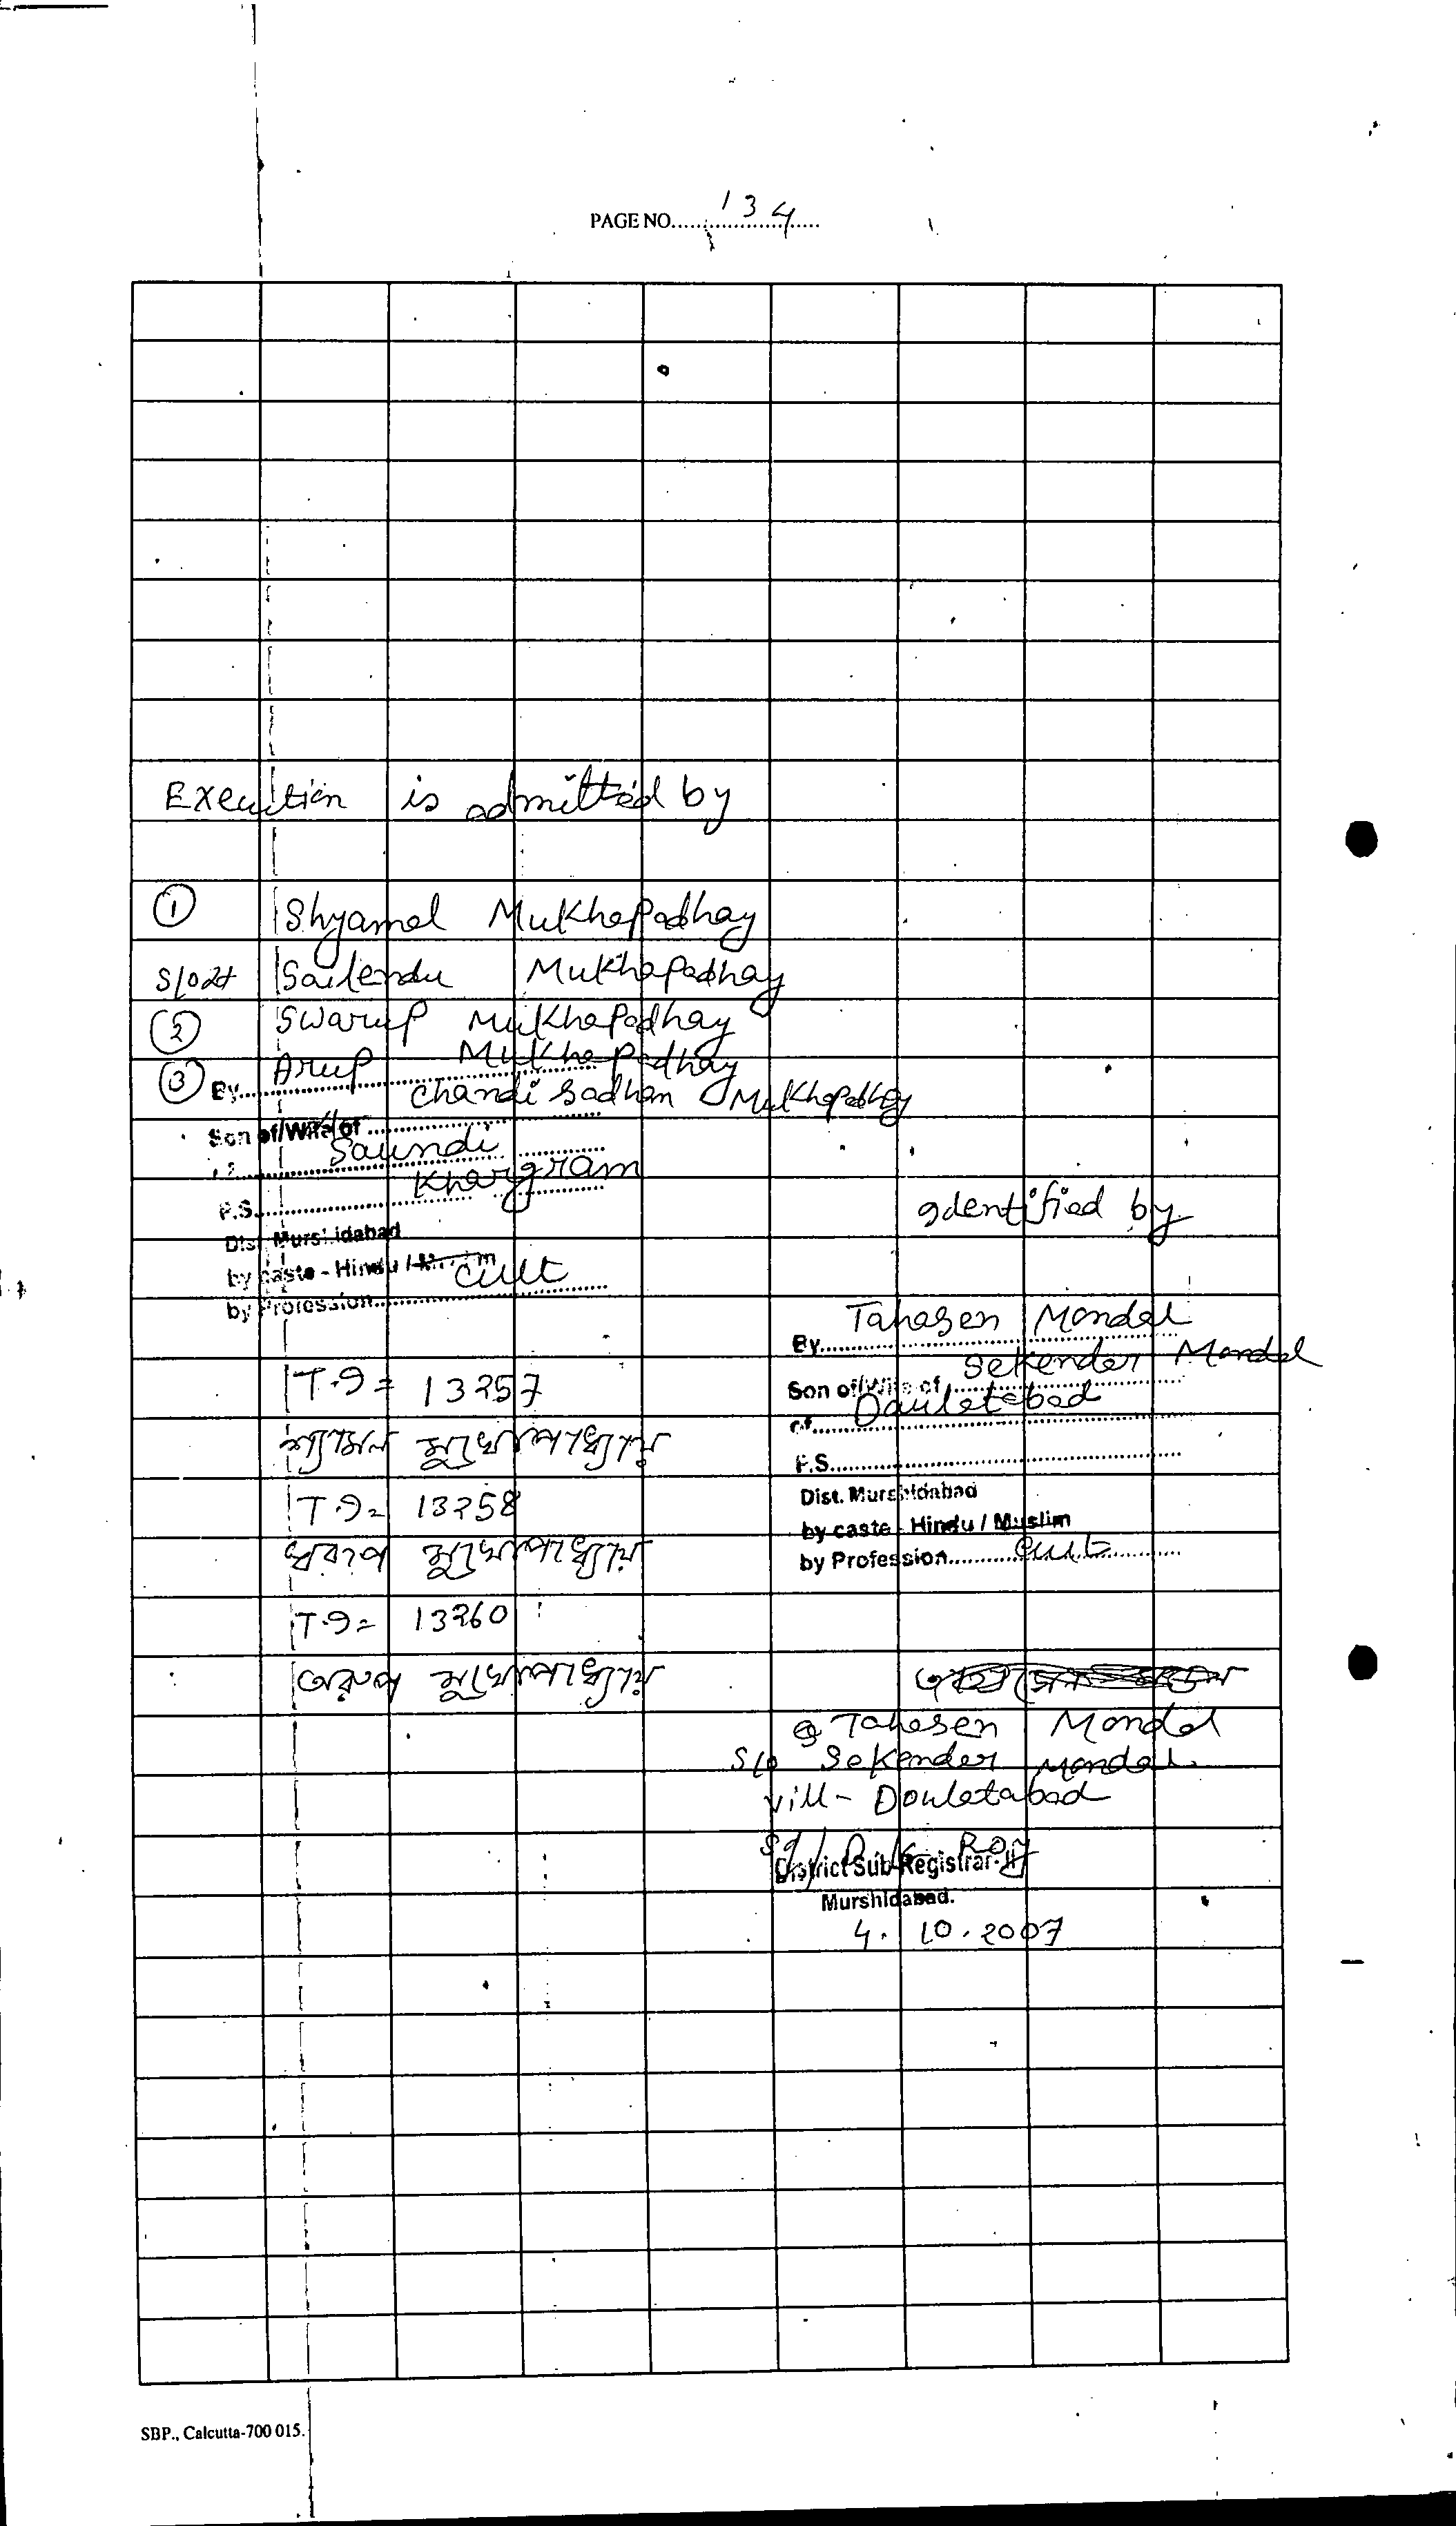 PAGE NO. 134
Execution is admitted by
① Shyamal Mukhapadhay
S/o Lt Sailendu Mukhapadhay
② Swarup Mukhapadhay
③ By Arup Mukhapadhay
Chandi Sadhan Mukhapadhay
Son of/Wife of
Saundi
P.S. Khargram
Dist Murshidabad
by caste - Hindu / Muslim
by Profession cult
Identified by
By Tahasen Mondal
Son of/Wife of Sekender Mondal
of Dauletabad
P.S.
Dist. Murshidabad
by caste - Hindu / Muslim
by Profession cult
T.I = 13257
শ্যামল মুখোপাধ্যায়
T.I = 13258
স্বরূপ মুখোপাধ্যায়
T.I = 13260
অরূপ মুখোপাধ্যায়
Tahasen Mondal
S/o Sekender Mondal
Vill - Douletabad
Sd/ D. K. Roy
District Sub-Registrar-II
Murshidabad.
4. 10. 2007
SBP., Calcutta-700 015.